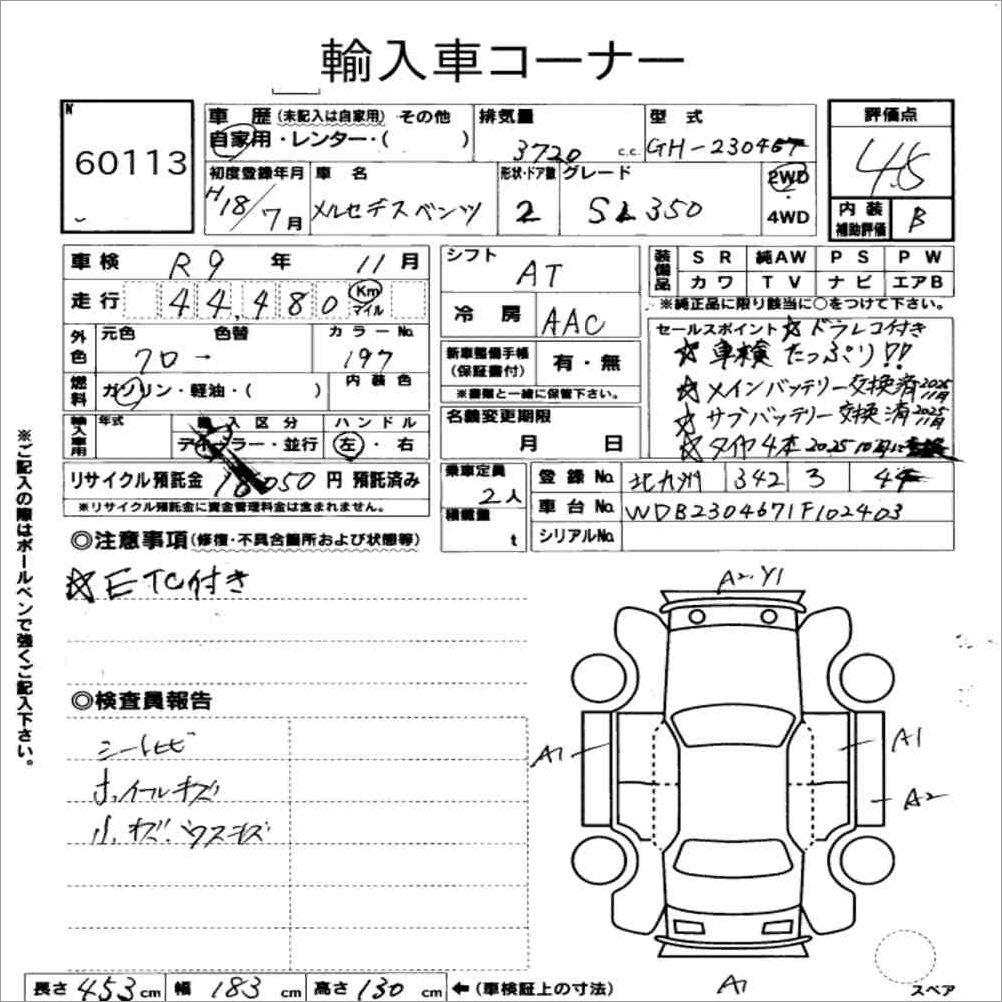 輸入車コーナー
N
60113
車歴 (未記入は自家用) その他
自家用・レンター・( )
排気量
3720 c.c.
型式
GH-230467
評価点
4.5
初度登録年月
H18/7月
車名
メルセデスベンツ
形状・ドア数
2
グレード
SL350
2WD
4WD
内装
補助評価
B
車検 R9年 11月
走行 44,480 Km
マイル
外色
元色 色替
クロ→
カラーNo.
197
燃料
ガソリン・軽油・( )
内装色
輸入車用
年式
輸入区分
ディーラー・並行
ハンドル
左・右
リサイクル預託金 050円 預託済み
※リサイクル預託金に資金管理料金は含まれません。
シフト
AT
冷房
AAC
新車整備手帳
(保証書付)
有・無
※書類と一緒に保管下さい。
名義変更期限
月 日
乗車定員
2人
積載量
t
装備品
SR 純AW PS PW
カワ TV ナビ エアB
※純正品に限り該当に○をつけて下さい。
セールスポイント ☆ドラレコ付き
☆車検たっぷり!!
☆メインバッテリー交換済2025 11月
☆サブバッテリー交換済2025 11月
☆タイヤ4本 2025 10月
登録No. 北九州 342 ヨ 44
車台No. WDB2304671F102403
シリアルNo.
◎注意事項(修復・不具合箇所および状態等)
☆ETC付き
◎検査員報告
シートヒビ
ホイールキズ
小キズ・ウスキズ
A2・Y1
A1
A1
A2
A1
スペア
長さ453cm 幅183cm 高さ130cm ←(車検証上の寸法)
※ご記入の際はボールペンで強くご記入下さい。